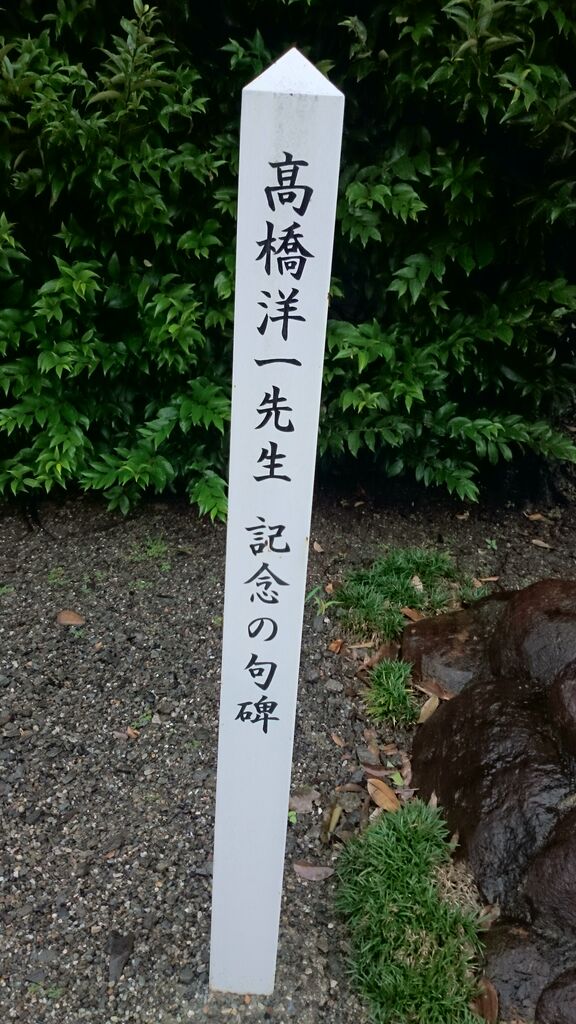 髙橋洋一先生 記念の句碑